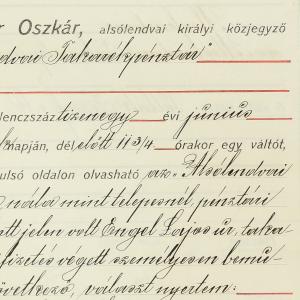 r Oszkár, alsólendvai királyi közjegyző
ndvai Takarékpénztár"
lenczszáz tizenegy évi június
napján, dél előtt 11 3/4 órakor egy váltót,
ulsó oldalon olvasható az "Alsólendvai
nála mint telepesnél, pénztári
tt jelen volt Engel Lajos úr, taka-
fizetés végett személyesen bemu-
övetkező választ nyertem: